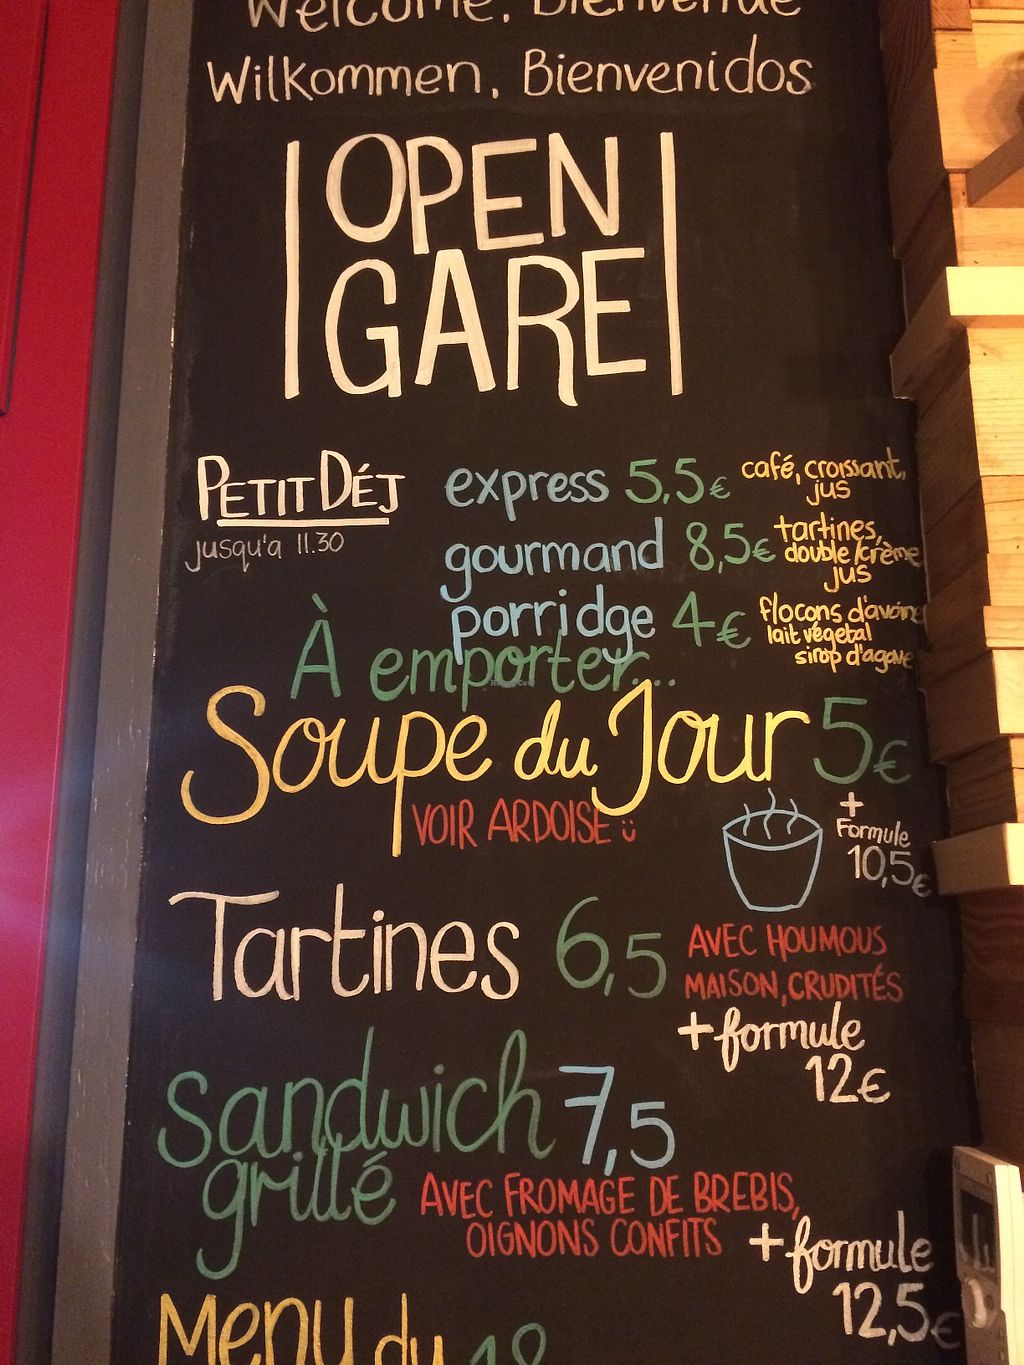 Welcome, Bienvenue
Willkommen, Bienvenidos
OPEN
GARE
PETIT DÉJ
jusqu'a 11.30
express 5,5€ café, croissant,
jus
gourmand 8,5€ tartines,
double crème
jus
porridge 4€ flocons d'avoine
lait végetal
sirop d'agave
À emporter...
Soupe du Jour 5€
VOIR ARDOISE
+
Formule
10,5€
Tartines 6,5 AVEC HOUMOUS
MAISON, CRUDITÉS
+ formule
12€
Sandwich 7,5
grillé
AVEC FROMAGE DE BREBIS,
OIGNONS CONFITS
+ formule
12,5€
Menu du